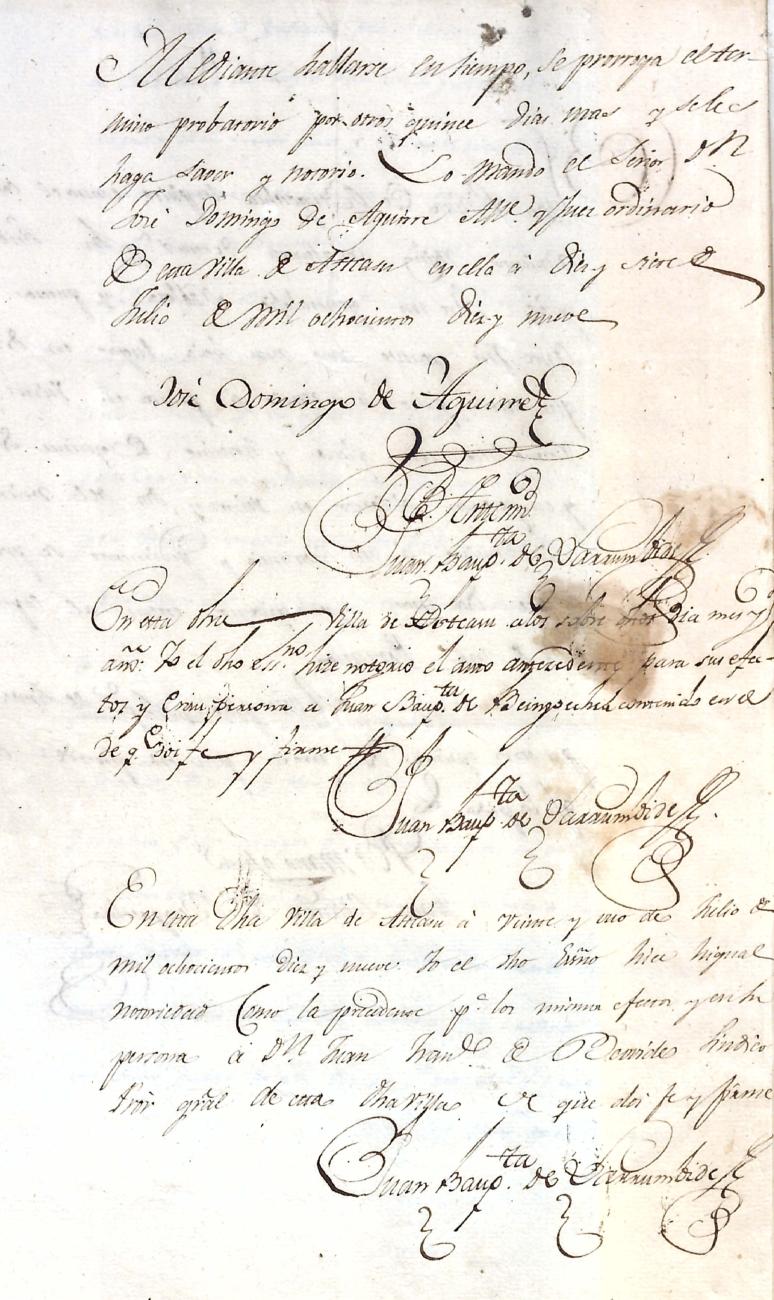 Mediante hallarse en tiempo, se prorroga el ter-
mino probatorio por otros quince dias mas y se les
haga saver y notorio. Lo mandó el Señor Dn
José Domingo de Aguirre Alle. y Juez ordinario
de esta villa de Ataun en ella á diez y siete de
Julio de mil ochocientos diez y nueve
José Domingo de Aguirre
Ante mi
Juan Baupta. de Larrumbide
En esta dha villa de a los sobre dhos dia mes y
año: Yo el dho Essno. hize notorio el auto antecedente para sus efec-
tos y en su persona a Juan Baupta. de contenido en el
de qe. doi fe y firme
Juan Baupta. de Larrumbide
En esta dha villa de á veinte y uno de Julio de
mil ochocientos diez y nueve. Yo el dho Essño hice higual
notoriedad como la precedente pa. los mismos efectos y en la
persona á Dn Juan de Sindico
Pror gral de esta dha villa de que doi fe y firme
Juan Baupta. de Larrumbide